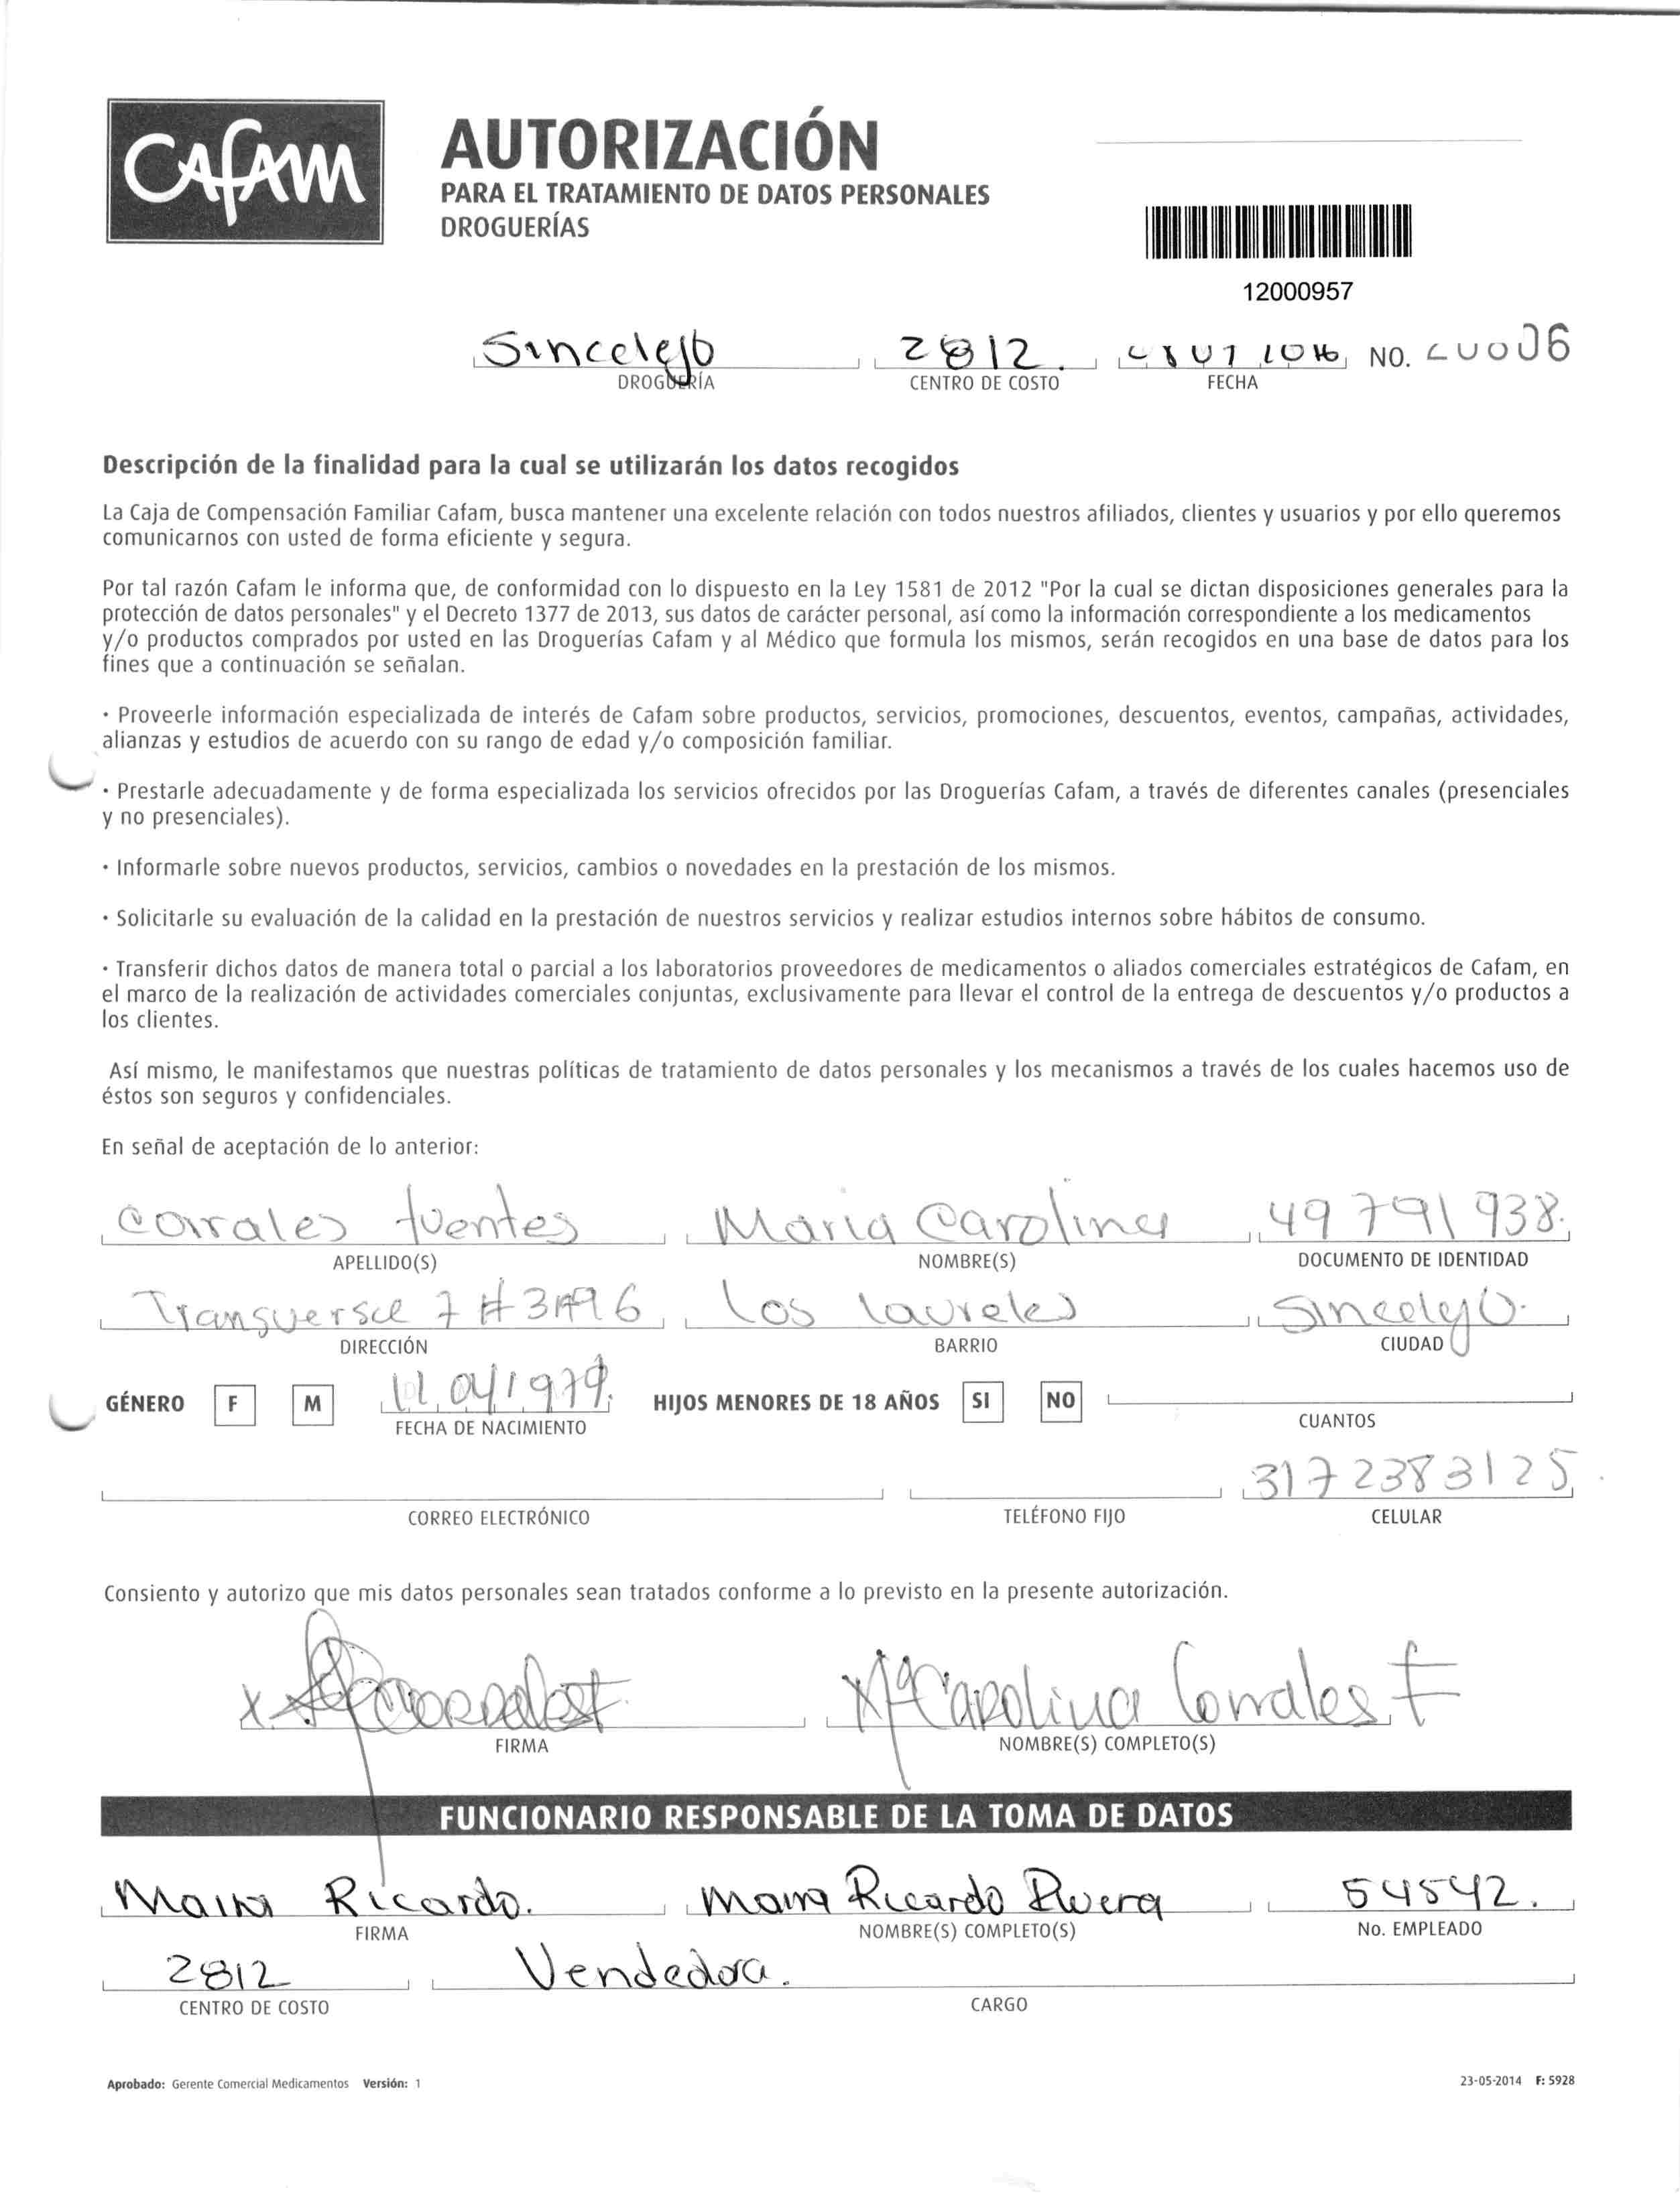 CAFAM
AUTORIZACIÓN
PARA EL TRATAMIENTO DE DATOS PERSONALES
DROGUERÍAS
12000957
Sincelejo 2812. NO. 06
DROGUERÍA CENTRO DE COSTO FECHA
Descripción de la finalidad para la cual se utilizarán los datos recogidos
La Caja de Compensación Familiar Cafam, busca mantener una excelente relación con todos nuestros afiliados, clientes y usuarios y por ello queremos
comunicarnos con usted de forma eficiente y segura.
Por tal razón Cafam le informa que, de conformidad con lo dispuesto en la Ley 1581 de 2012 "Por la cual se dictan disposiciones generales para la
protección de datos personales" y el Decreto 1377 de 2013, sus datos de carácter personal, así como la información correspondiente a los medicamentos
y/o productos comprados por usted en las Droguerías Cafam y al Médico que formula los mismos, serán recogidos en una base de datos para los
fines que a continuación se señalan.
· Proveerle información especializada de interés de Cafam sobre productos, servicios, promociones, descuentos, eventos, campañas, actividades,
alianzas y estudios de acuerdo con su rango de edad y/o composición familiar.
· Prestarle adecuadamente y de forma especializada los servicios ofrecidos por las Droguerías Cafam, a través de diferentes canales (presenciales
y no presenciales).
· Informarle sobre nuevos productos, servicios, cambios o novedades en la prestación de los mismos.
· Solicitarle su evaluación de la calidad en la prestación de nuestros servicios y realizar estudios internos sobre hábitos de consumo.
· Transferir dichos datos de manera total o parcial a los laboratorios proveedores de medicamentos o aliados comerciales estratégicos de Cafam, en
el marco de la realización de actividades comerciales conjuntas, exclusivamente para llevar el control de la entrega de descuentos y/o productos a
los clientes.
Así mismo, le manifestamos que nuestras políticas de tratamiento de datos personales y los mecanismos a través de los cuales hacemos uso de
éstos son seguros y confidenciales.
En señal de aceptación de lo anterior:
Corrales fuentes Maria Carolina 49 791 938.
APELLIDO(S) NOMBRE(S) DOCUMENTO DE IDENTIDAD
Transverse 7 # Los laureles Sincelejo.
DIRECCIÓN BARRIO CIUDAD
GÉNERO F M 04 1979. HIJOS MENORES DE 18 AÑOS SI NO
FECHA DE NACIMIENTO CUANTOS
317 2383125.
CORREO ELECTRÓNICO TELÉFONO FIJO CELULAR
Consiento y autorizo que mis datos personales sean tratados conforme a lo previsto en la presente autorización.
x Mª Carolina Corrales F
FIRMA NOMBRE(S) COMPLETO(S)
FUNCIONARIO RESPONSABLE DE LA TOMA DE DATOS
Ricardo. Ricardo Rivera 54542.
FIRMA NOMBRE(S) COMPLETO(S) No. EMPLEADO
2812 Vendedora.
CENTRO DE COSTO CARGO
Aprobado: Gerente Comercial Medicamentos Versión: 1 23-05-2014 F: 5928